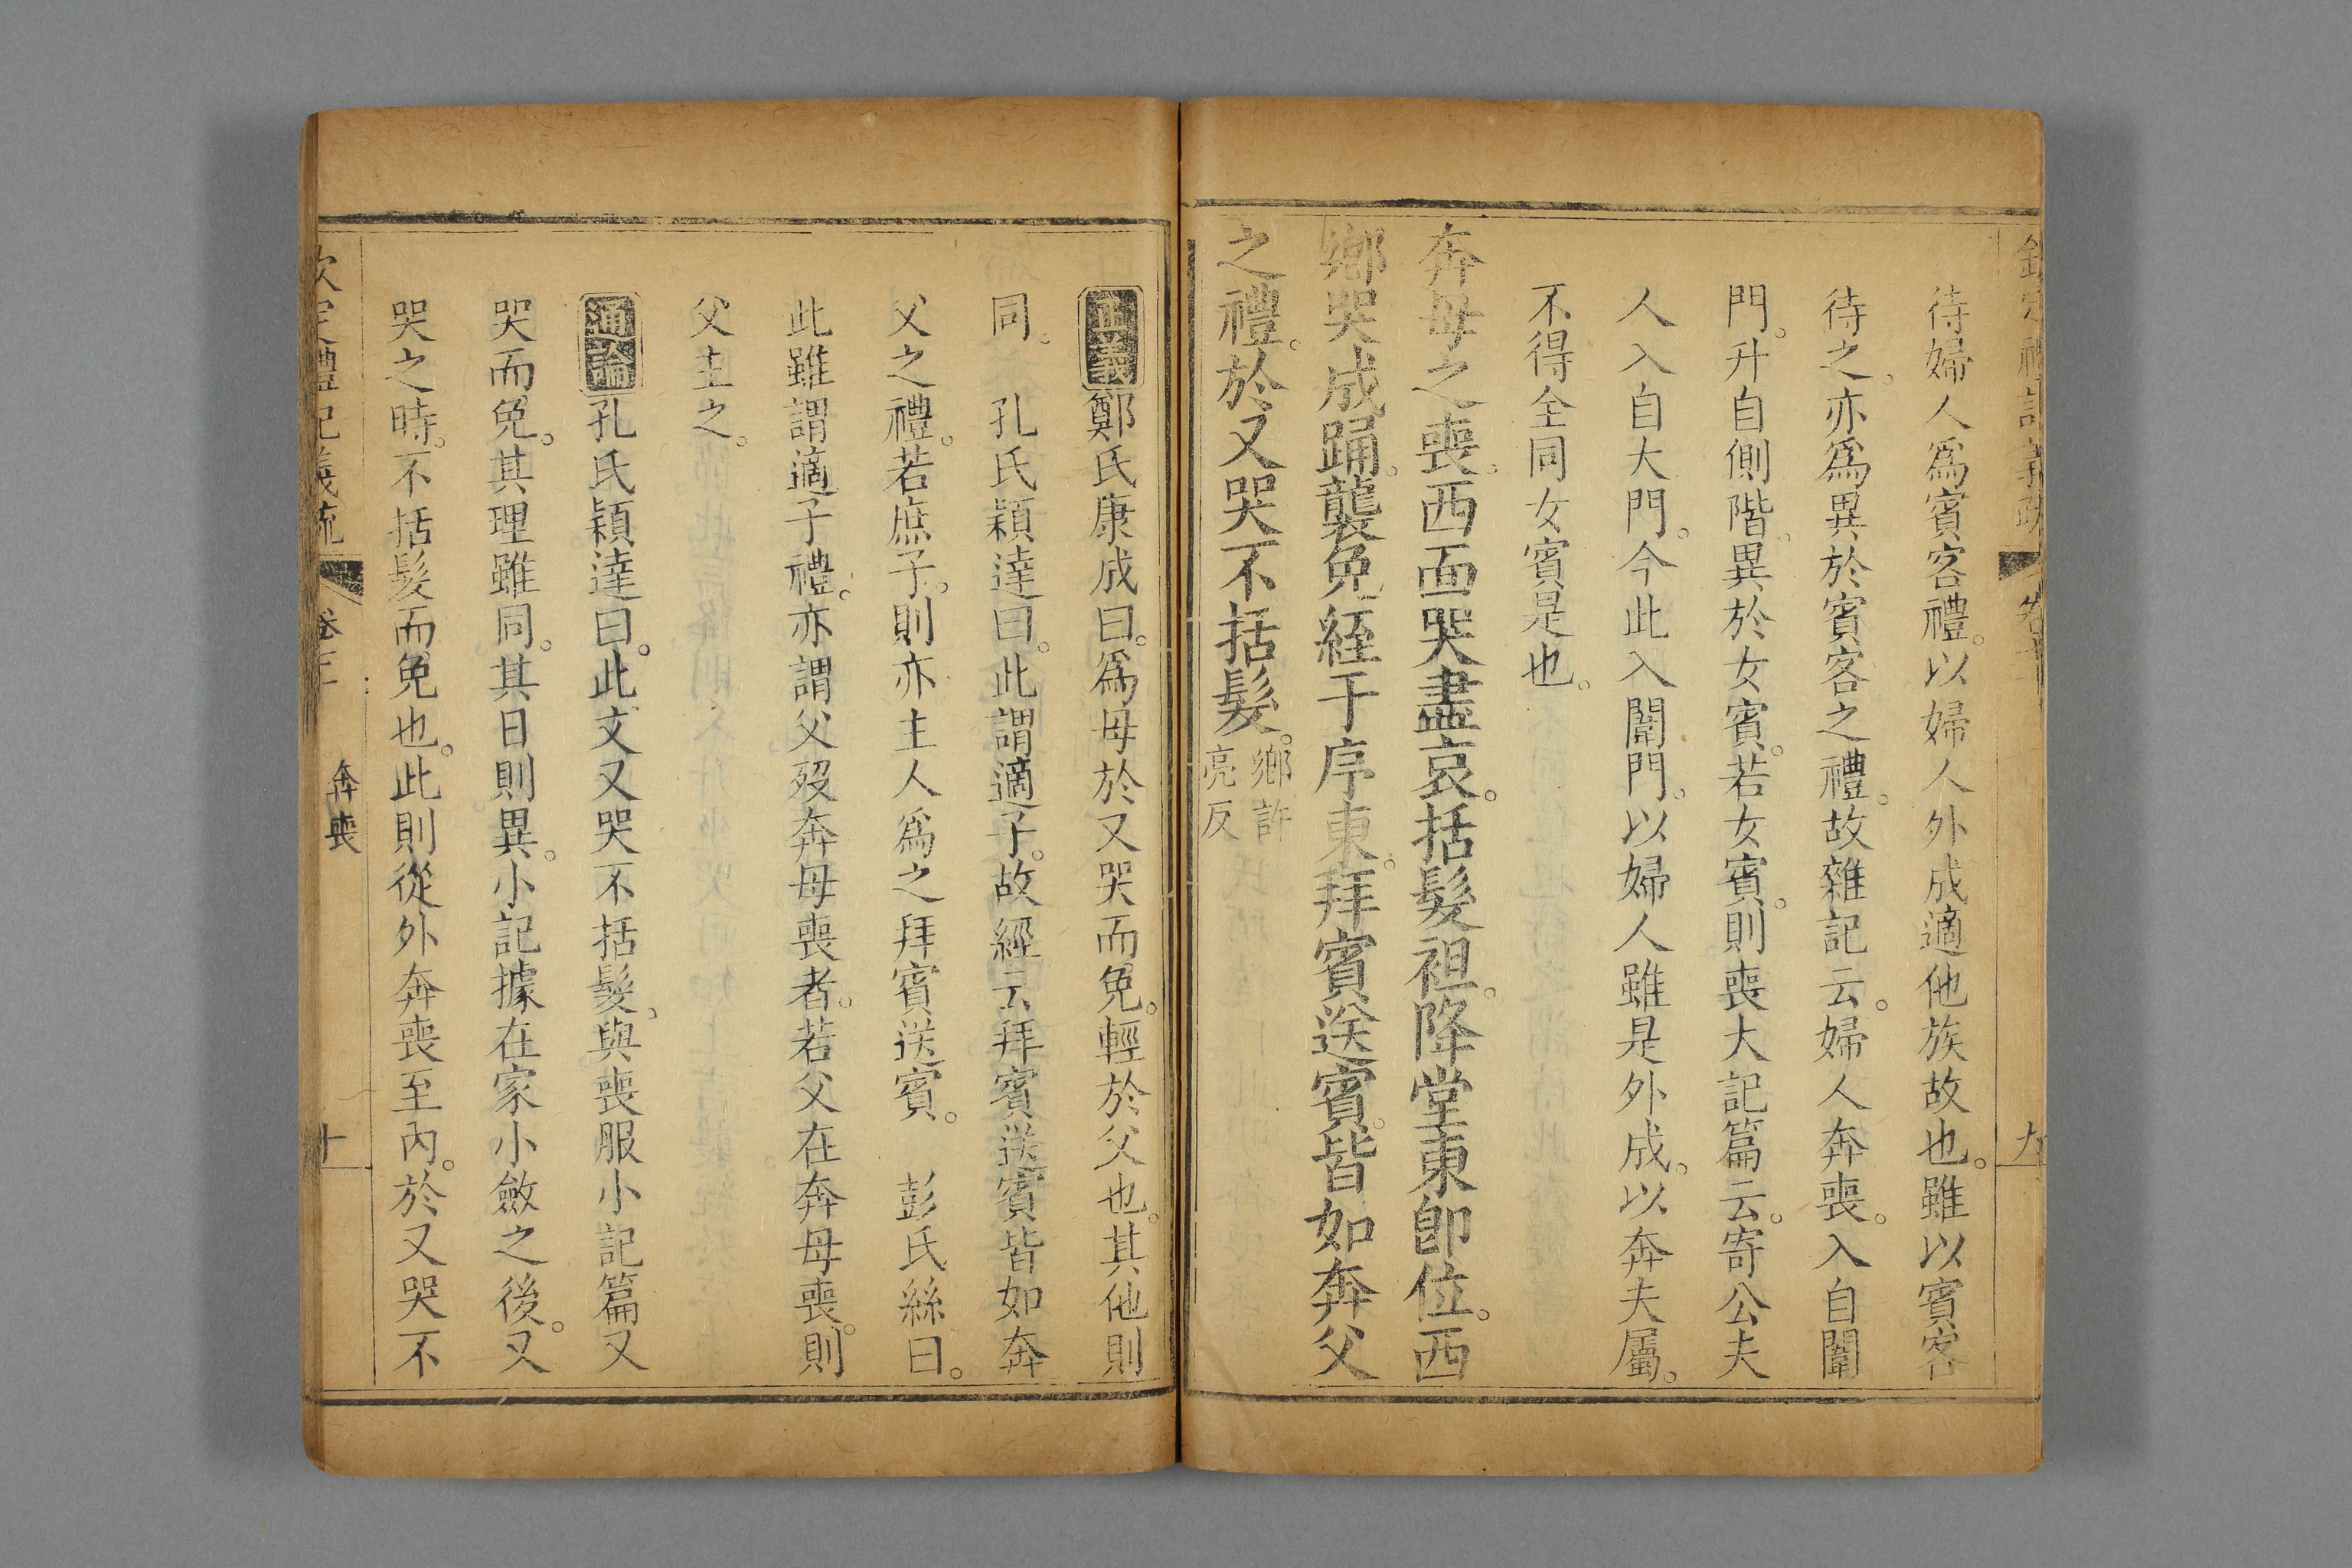 待婦人爲賓客禮。以婦人外成適他族故也。雖以賓客
待之。亦爲異於賓客之禮。故雜記云。婦人奔喪。入自闈
門。升自側階。異於女賓。若女賓。則喪大記篇云。寄公夫
人入自大門。今此入闈門。以婦人雖是外成。以奔夫屬。
不得全同女賓是也。
奔母之喪。西面哭盡哀。括髮袒。降堂東卽位。西
鄉哭成踊。襲免絰于序東。拜賓送賓。皆如奔父
之禮。於又哭不括髮。鄉許
亮反
正義鄭氏康成曰。爲母於又哭而免。輕於父也。其他則
同。 孔氏穎達曰。此謂適子。故經云拜賓送賓皆如奔
父之禮。若庶子。則亦主人爲之拜賓送賓。 彭氏絲曰。
此雖謂適子禮。亦謂父歿奔母喪者。若父在奔母喪。則
父主之。
通論孔氏穎達曰。此文又哭不括髮。與喪服小記篇又
哭而免。其理雖同。其日則異。小記據在家小斂之後。又
哭之時。不括髮而免也。此則從外奔喪至內。於又哭不
欽定禮記義疏 卷 奔喪 十